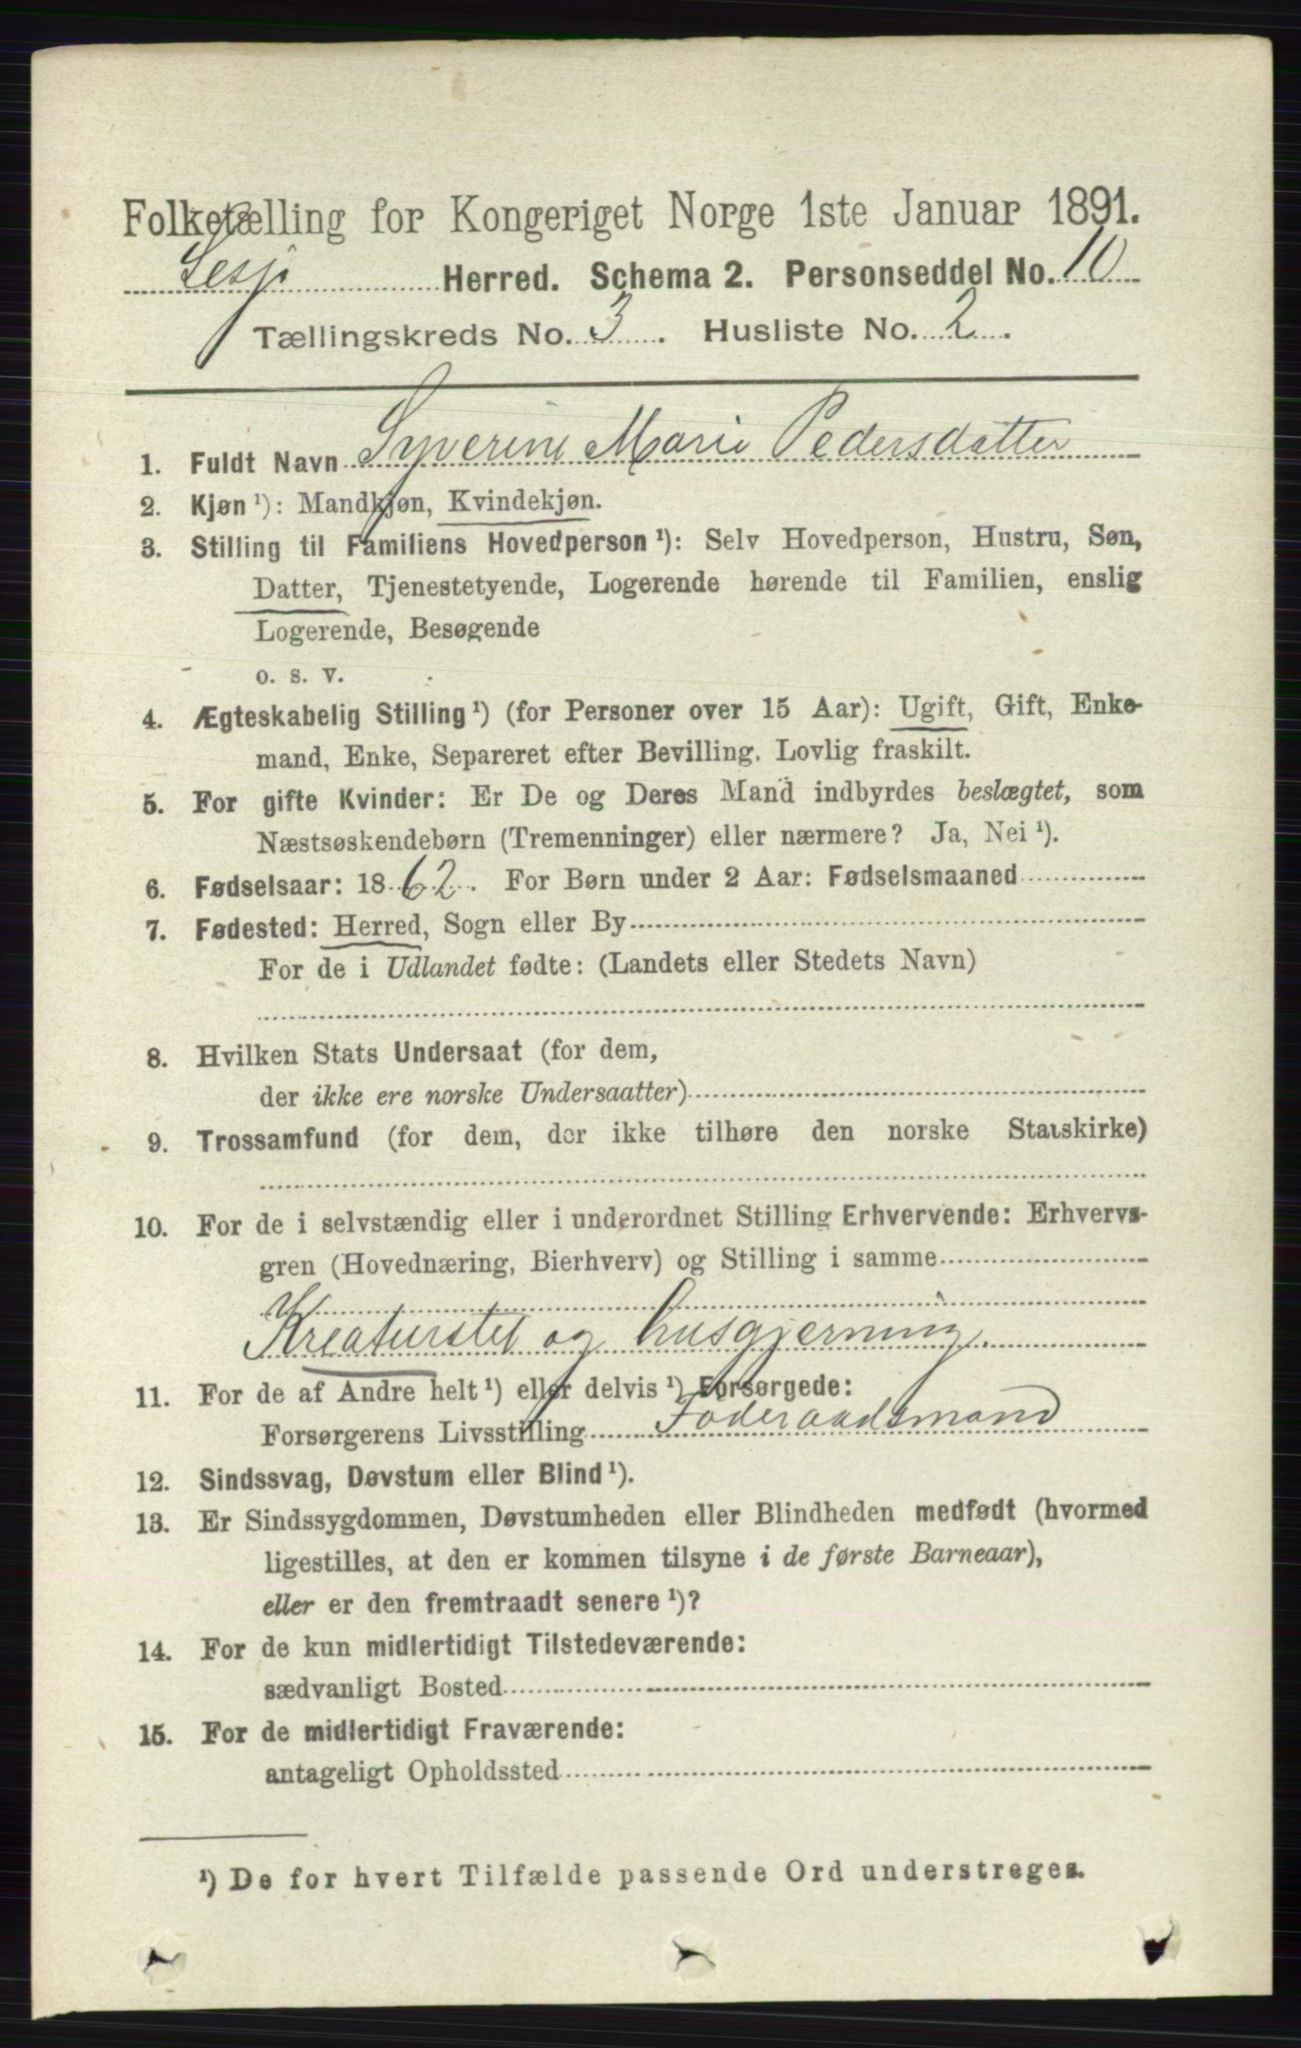 Folketælling for Kongeriget Norge 1ste Januar 1891.
Lesje Herred. Schema 2. Personseddel No. 10
Tællingskreds No. 3. Husliste No. 2.
1. Fuldt Navn Syverine Marie Pedersdatter
2. Kjøn¹): Mandkjøn, Kvindekjøn.
3. Stilling til Familiens Hovedperson¹): Selv Hovedperson, Hustru, Søn,
Datter, Tjenestetyende, Logerende hørende til Familien, enslig
Logerende, Besøgende
o. s. v.
4. Ægteskabelig Stilling¹) (for Personer over 15 Aar): Ugift, Gift, Enke-
mand, Enke, Separeret efter Bevilling. Lovlig fraskilt.
5. For gifte Kvinder: Er De og Deres Mand indbyrdes beslægtet, som
Næstsøskendebørn (Tremenninger) eller nærmere? Ja, Nei¹).
6. Fødselsaar: 1862. For Børn under 2 Aar: Fødselsmaaned
7. Fødested: Herred, Sogn eller By
For de i Udlandet fødte: (Landets eller Stedets Navn)
8. Hvilken Stats Undersaat (for dem,
der ikke ere norske Undersaatter)
9. Trossamfund (for dem, der ikke tilhøre den norske Statskirke)
10. For de i selvstændig eller i underordnet Stilling Erhvervende: Erhvervs-
gren (Hovednæring, Bierhverv) og Stilling i samme
Kreaturstel og husgjerning.
11. For de af Andre helt¹) eller delvis¹) Forsørgede:
Forsørgerens Livsstilling Föderaadsmand
12. Sindssvag, Døvstum eller Blind¹).
13. Er Sindssygdommen, Døvstumheden eller Blindheden medfødt (hvormed
ligestilles, at den er kommen tilsyne i de første Barneaar),
eller er den fremtraadt senere¹)?
14. For de kun midlertidigt Tilstedeværende:
sædvanligt Bosted
15. For de midlertidigt Fraværende:
antageligt Opholdssted
¹) De for hvert Tilfælde passende Ord understreges.